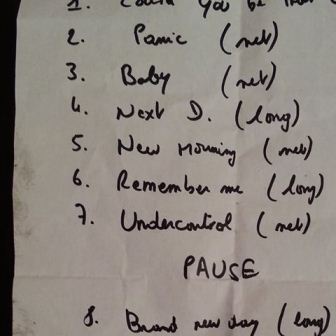 1. Could you be that
2. Panic (net)
3. Baby (net)
4. Next D. (long)
5. New Morning (net)
6. Remember me (long)
7. Undercontrol (net)
PAUSE
8. Brand new day (long)